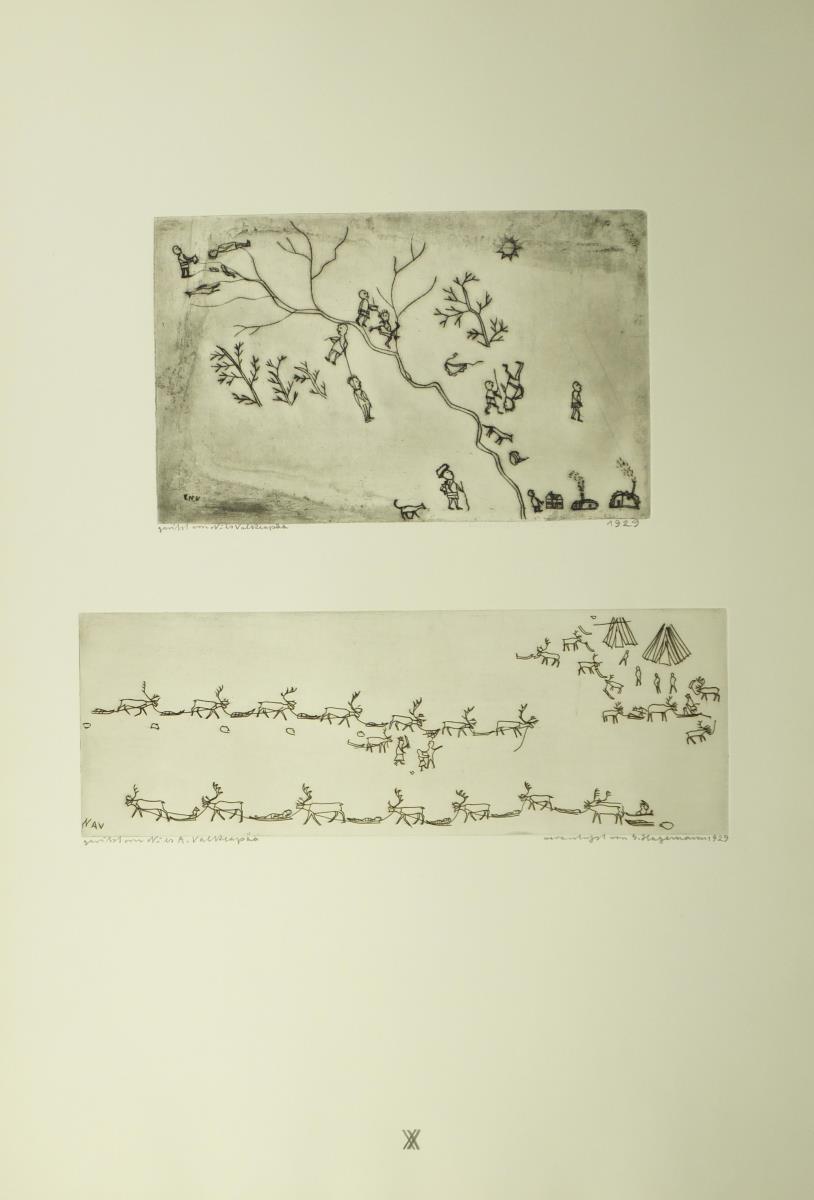 geritzt von Nils Valkeapää 1929
NAV
geritzt von Nils A. Valkeapää veranlasst von G. Hagemann 1929